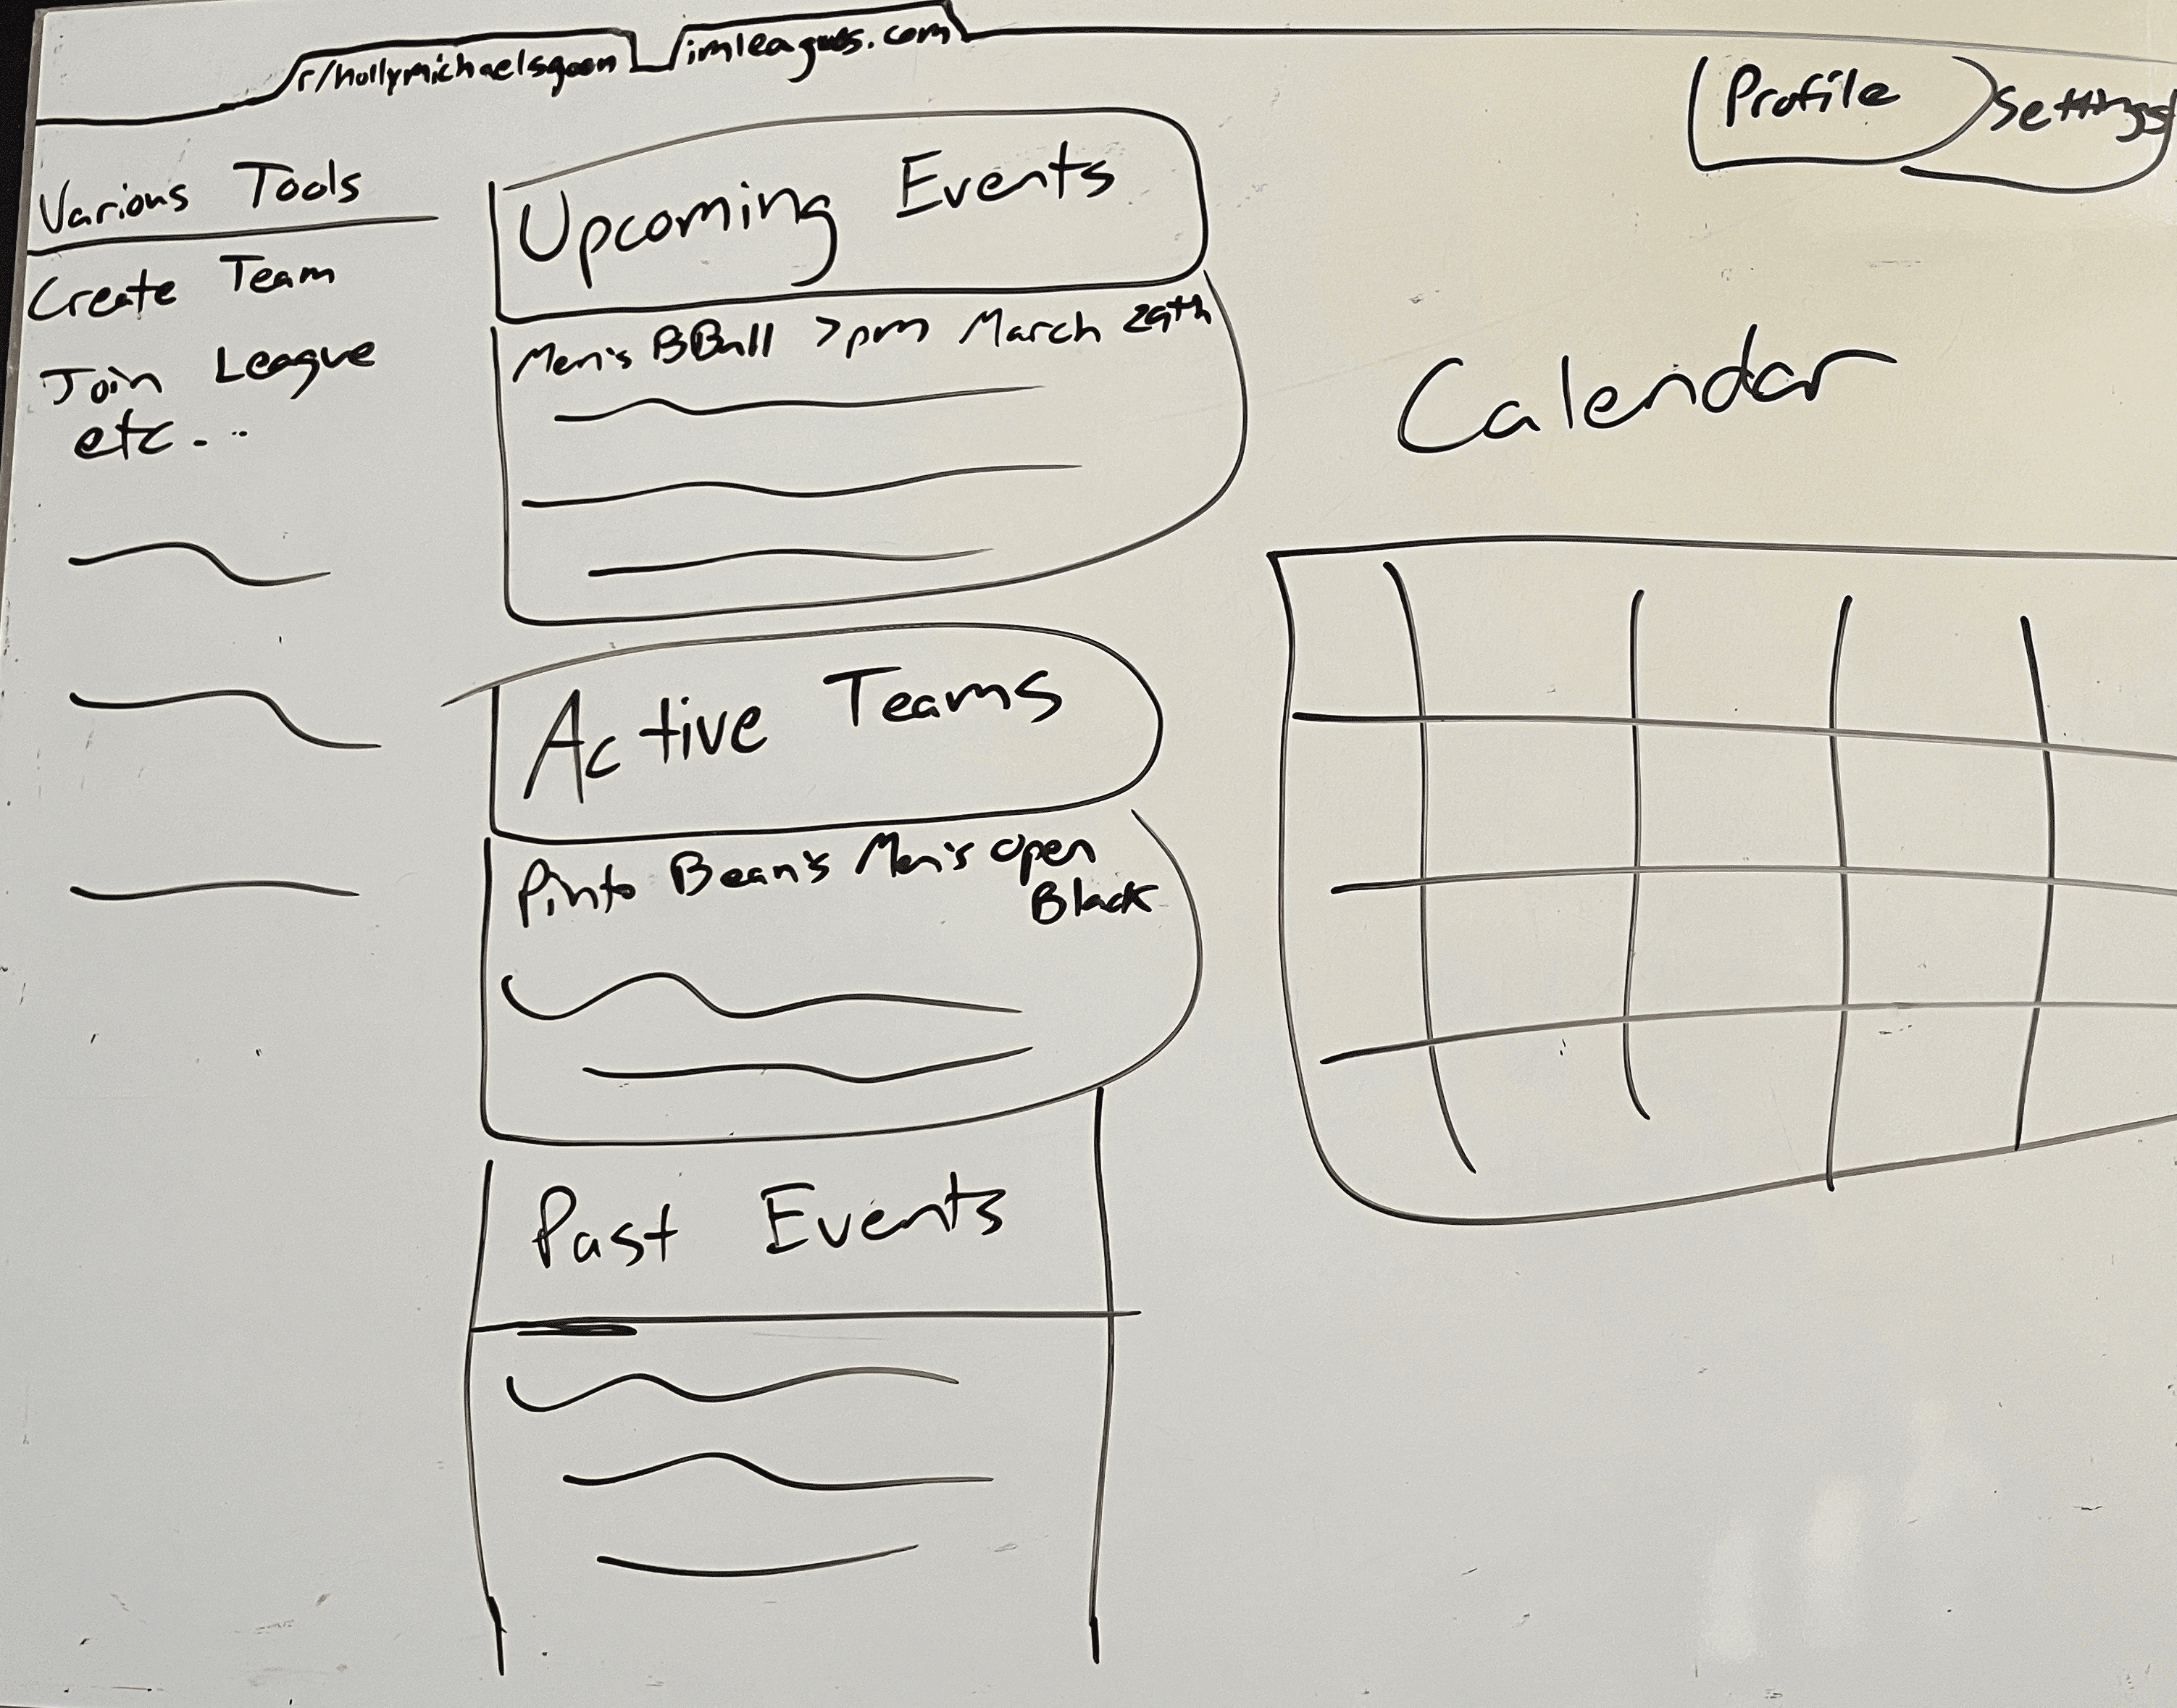 r/hollymichaelsgoon
imleagues.com
Profile
Settings
Various Tools
Create Team
Join League
etc...
Upcoming Events
Men's BBall 7pm March 29th
Active Teams
Pinto Bean's Men's open
Black
Past Events
Calendar